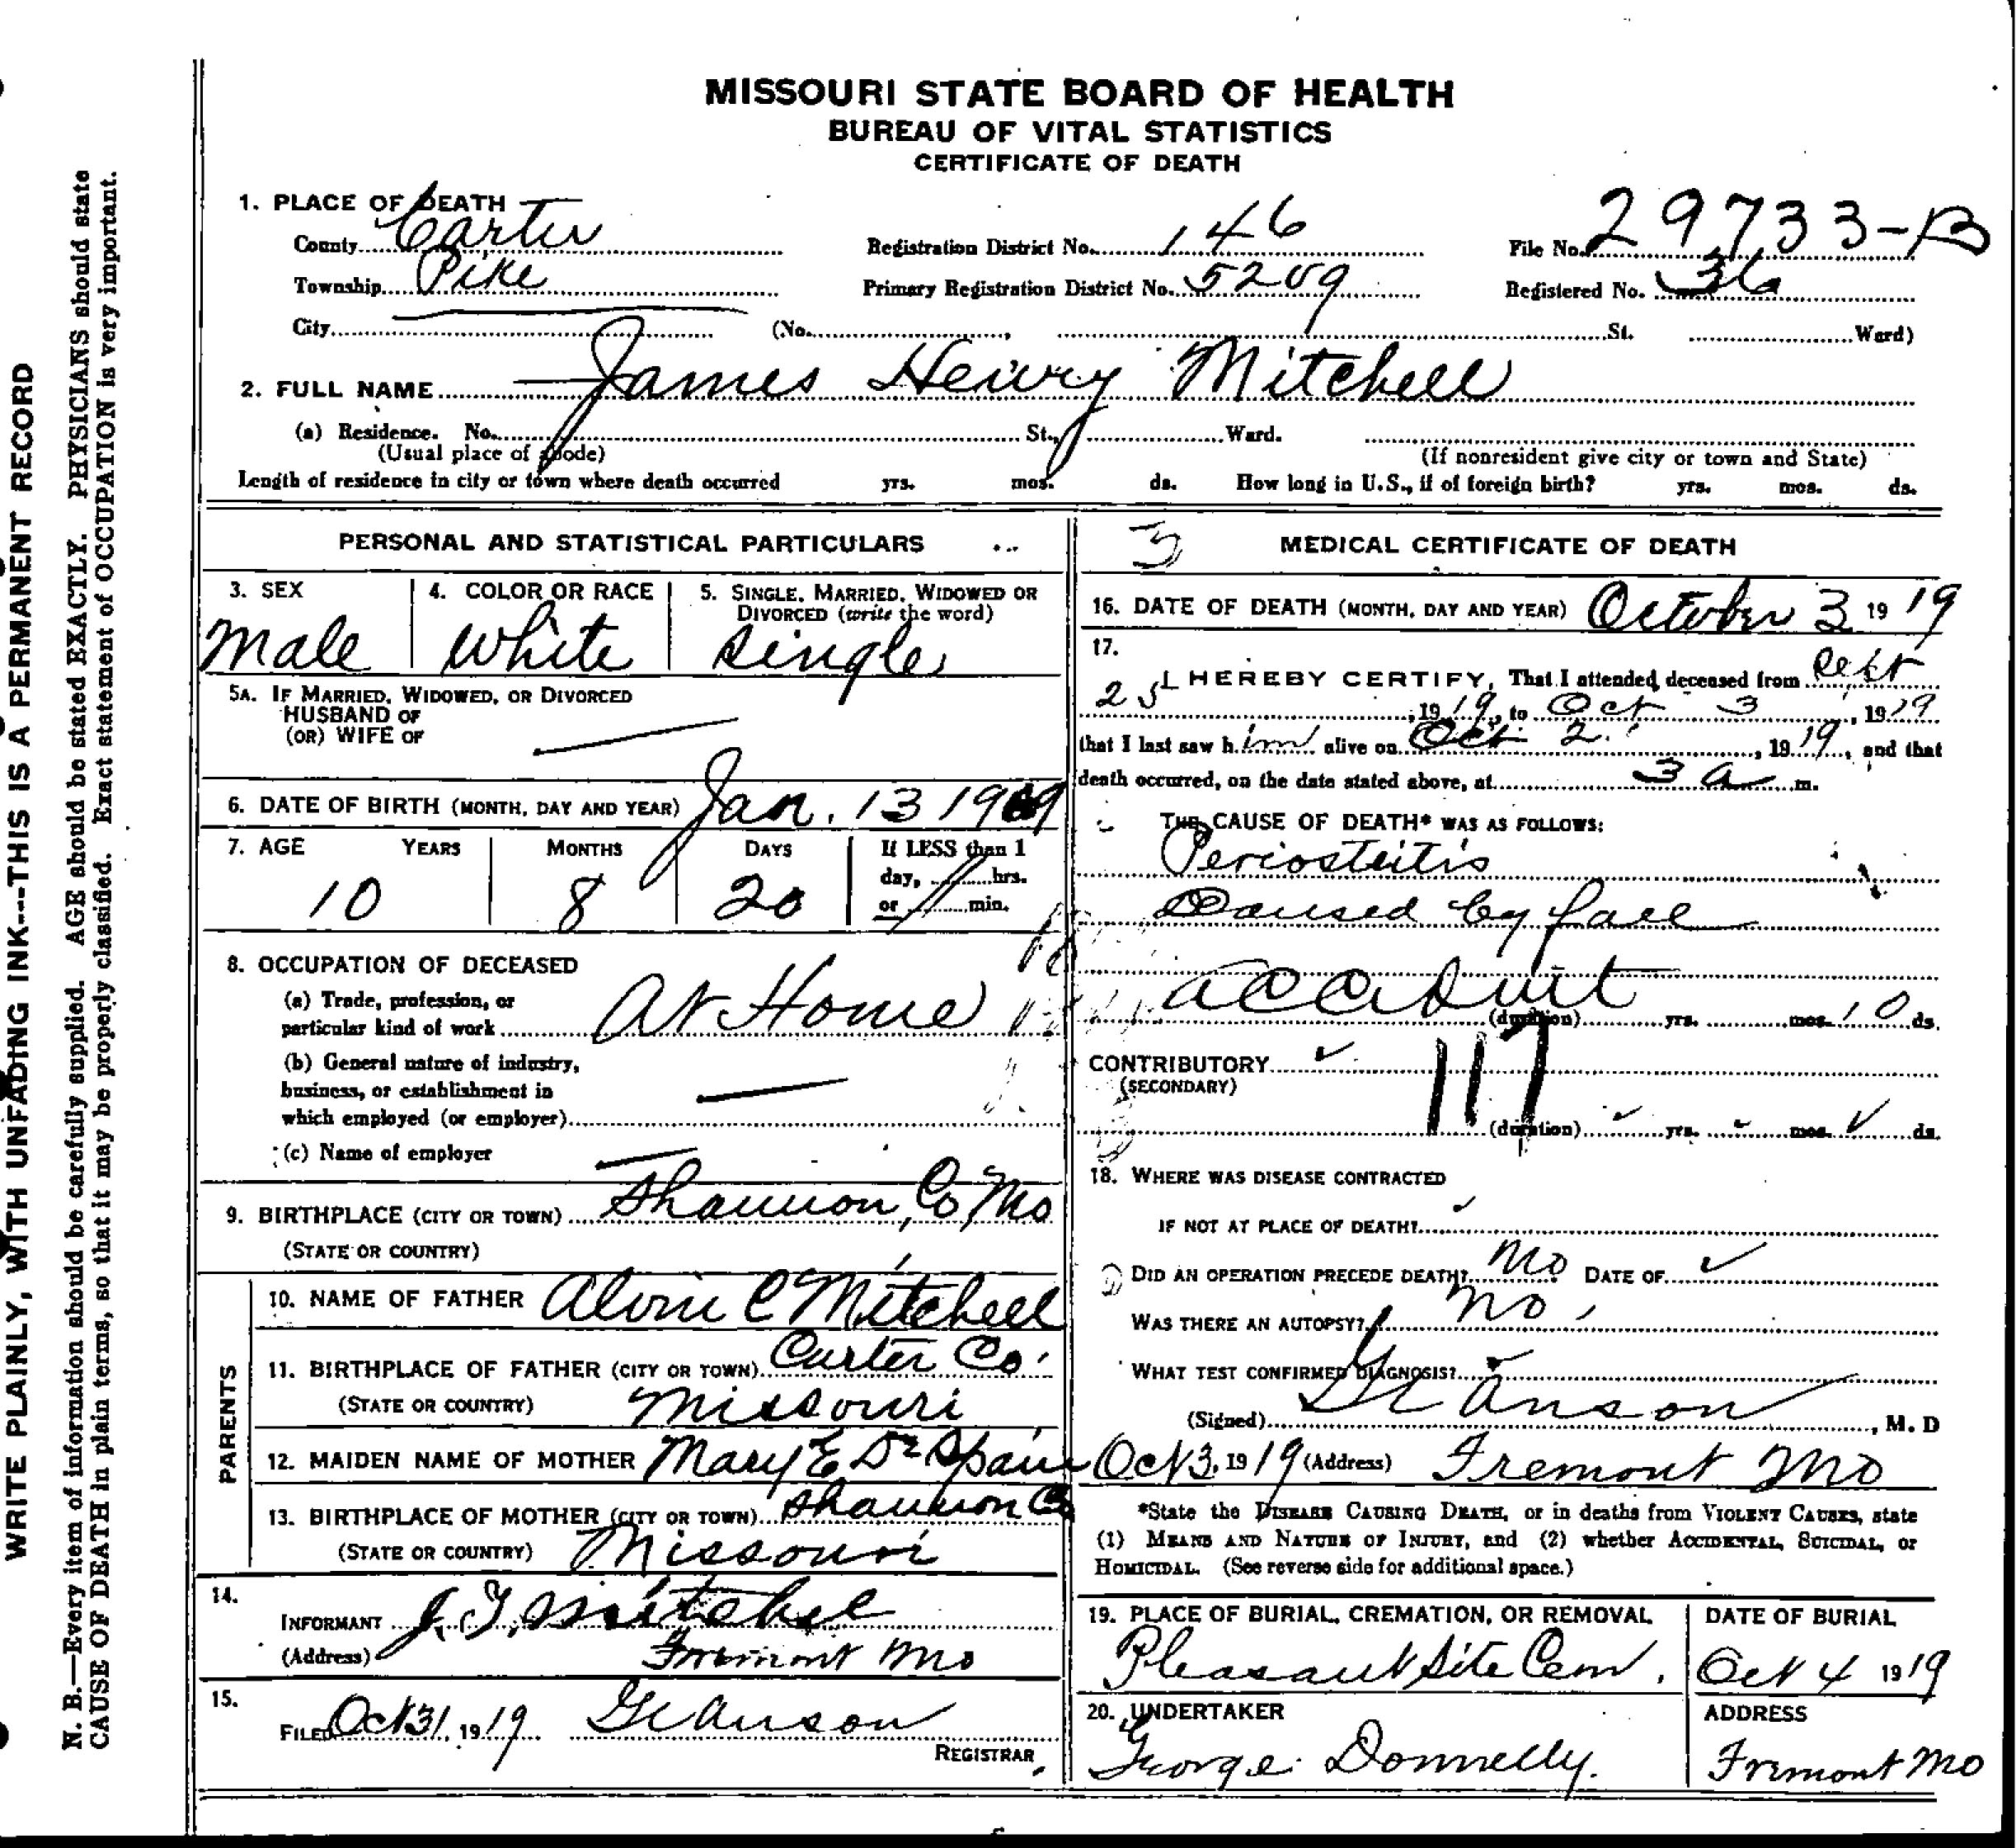 MISSOURI STATE BOARD OF HEALTH
BUREAU OF VITAL STATISTICS
CERTIFICATE OF DEATH
1. PLACE OF DEATH
County Carter Registration District No. 146 File No. 29733-B
Township Pike Primary Registration District No. 5209 Registered No. 36
City (No. , St. Ward)
2. FULL NAME James Henry Mitchell
(a) Residence. No. St., Ward.
(Usual place of abode) (If nonresident give city or town and State)
Length of residence in city or town where death occurred yrs. mos. ds. How long in U.S., if of foreign birth? yrs. mos. ds.
PERSONAL AND STATISTICAL PARTICULARS
3. SEX 4. COLOR OR RACE 5. SINGLE, MARRIED, WIDOWED OR
DIVORCED (write the word)
Male White Single
5A. IF MARRIED, WIDOWED, OR DIVORCED
HUSBAND OF
(OR) WIFE OF
6. DATE OF BIRTH (MONTH, DAY AND YEAR) Jan. 13 1909
7. AGE YEARS MONTHS DAYS If LESS than 1
day, hrs.
or min.
10 8 20
8. OCCUPATION OF DECEASED
(a) Trade, profession, or
particular kind of work At Home
(b) General nature of industry,
business, or establishment in
which employed (or employer)
(c) Name of employer
9. BIRTHPLACE (CITY OR TOWN) Shannon, Co, Mo
(STATE OR COUNTRY)
PARENTS
10. NAME OF FATHER Alvin C Mitchell
11. BIRTHPLACE OF FATHER (CITY OR TOWN) Carter Co.
(STATE OR COUNTRY) Missouri
12. MAIDEN NAME OF MOTHER Mary E De Spain
13. BIRTHPLACE OF MOTHER (CITY OR TOWN) Shannon Co
(STATE OR COUNTRY) Missouri
14.
INFORMANT J. T. Mitchel
(Address) Fremont Mo
15.
FILED Oct 31, 1919 Anson
REGISTRAR
3 MEDICAL CERTIFICATE OF DEATH
16. DATE OF DEATH (MONTH, DAY AND YEAR) October 3 1919
17.
I HEREBY CERTIFY, That I attended deceased from Sept
25, 1919, to Oct 3, 1919
that I last saw him alive on Oct 2, 1919, and that
death occurred, on the date stated above, at 3 a m.
THE CAUSE OF DEATH* WAS AS FOLLOWS:
Periosteitis
Caused by fall
accident
(duration) yrs. mos. 10 ds.
CONTRIBUTORY
(SECONDARY)
117
(duration) yrs. mos. ds.
18. WHERE WAS DISEASE CONTRACTED
IF NOT AT PLACE OF DEATH?
DID AN OPERATION PRECEDE DEATH? No DATE OF
WAS THERE AN AUTOPSY? no
WHAT TEST CONFIRMED DIAGNOSIS?
(Signed) Anson, M. D
Oct 3, 1919 (Address) Fremont Mo
*State the DISEASE CAUSING DEATH, or in deaths from VIOLENT CAUSES, state
(1) MEANS AND NATURE OF INJURY, and (2) whether ACCIDENTAL, SUICIDAL, or
HOMICIDAL. (See reverse side for additional space.)
19. PLACE OF BURIAL, CREMATION, OR REMOVAL DATE OF BURIAL
Pleasant Site Cem. Oct 4 1919
20. UNDERTAKER ADDRESS
George Donnelly. Fremont Mo
WRITE PLAINLY, WITH UNFADING INK---THIS IS A PERMANENT RECORD
N. B.—Every item of information should be carefully supplied. AGE should be stated EXACTLY. PHYSICIANS should state
CAUSE OF DEATH in plain terms, so that it may be properly classified. Exact statement of OCCUPATION is very important.